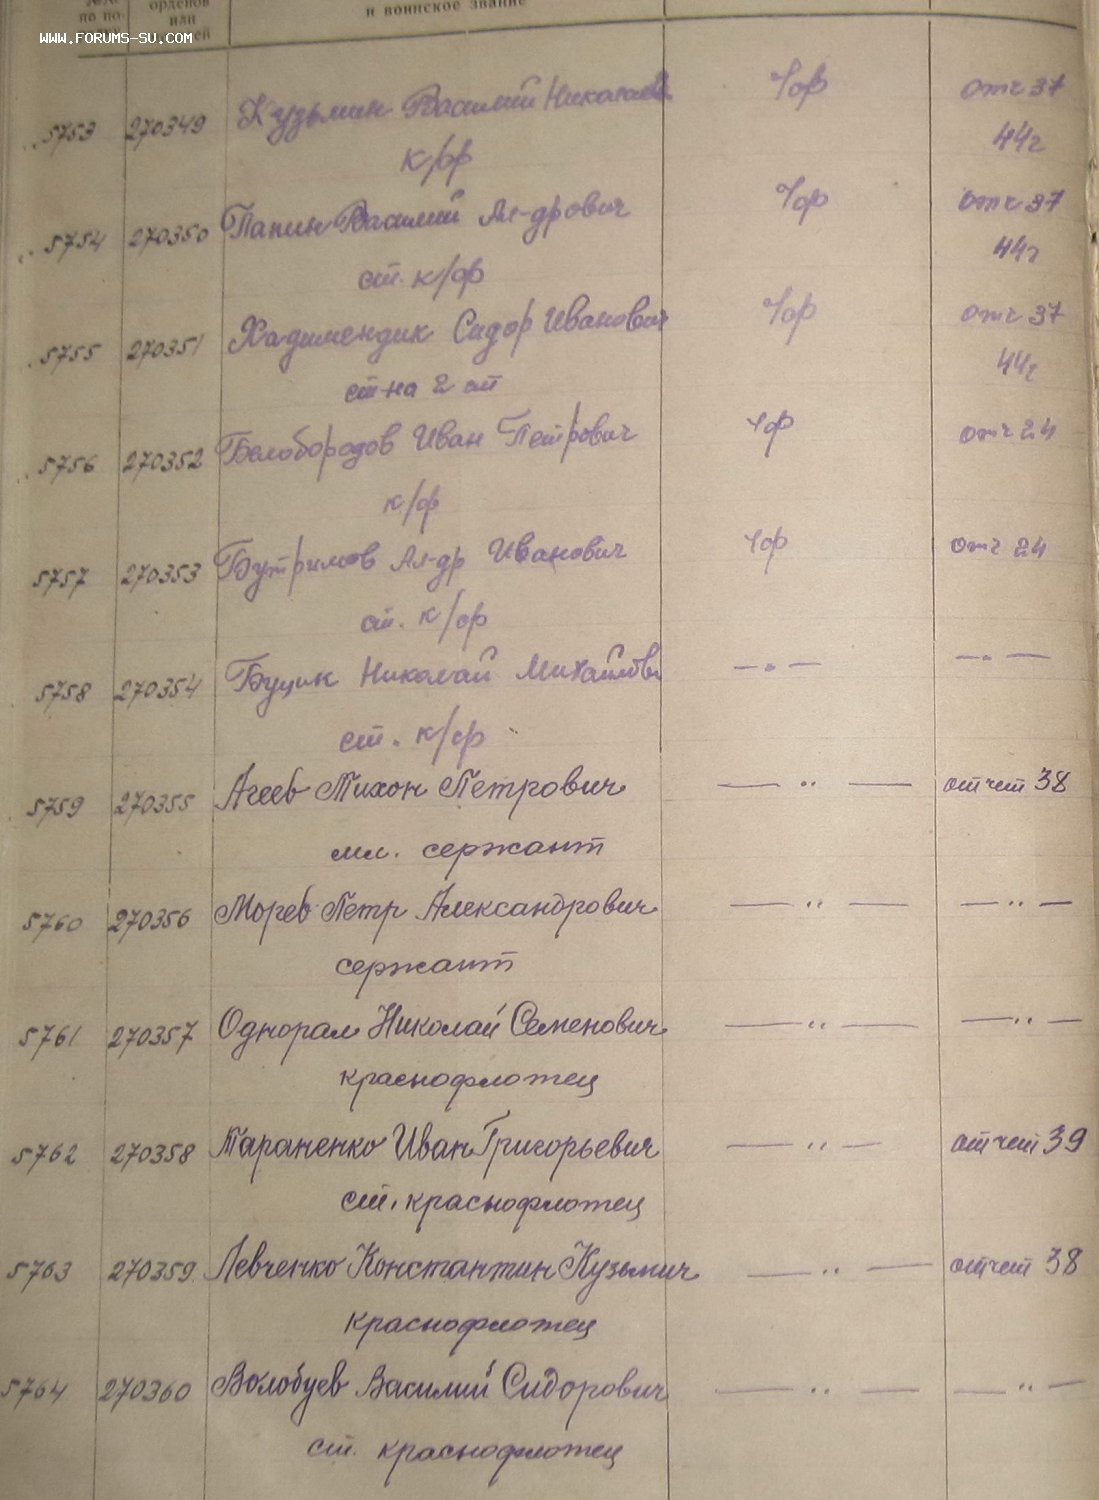 по по-
орденов
или
и воинское звание
WWW.FORUMS-SU.COM
5753 270349 Кузьмин Василий Николаев Чф отч 37
к/ф 44г
5754 270350 Папин Василий Ал-дрович Чф отч 37
ст. к/ф 44г
5755 270351 Хадимендик Сидор Иванович Чф отч 37
ст-на 2 ст 44г
5756 270352 Белобородов Иван Петрович Чф отч 24
к/ф
5757 270353 Бутримов Ал-др Иванович Чф отч 24
ст. к/ф
5758 270354 Буцик Николай Михайлов — " — — " —
ст. к/ф
5759 270355 Агеев Тихон Петрович — " — отчет 38
мл. сержант
5760 270356 Морев Петр Александрович — " — — " —
сержант
5761 270357 Однорал Николай Семенович — " — — " —
краснофлотец
5762 270358 Тараненко Иван Григорьевич — " — отчет 39
ст. краснофлотец
5763 270359 Левченко Константин Кузьмич — " — отчет 38
краснофлотец
5764 270360 Волобуев Василий Сидорович — " — — " —
ст. краснофлотец